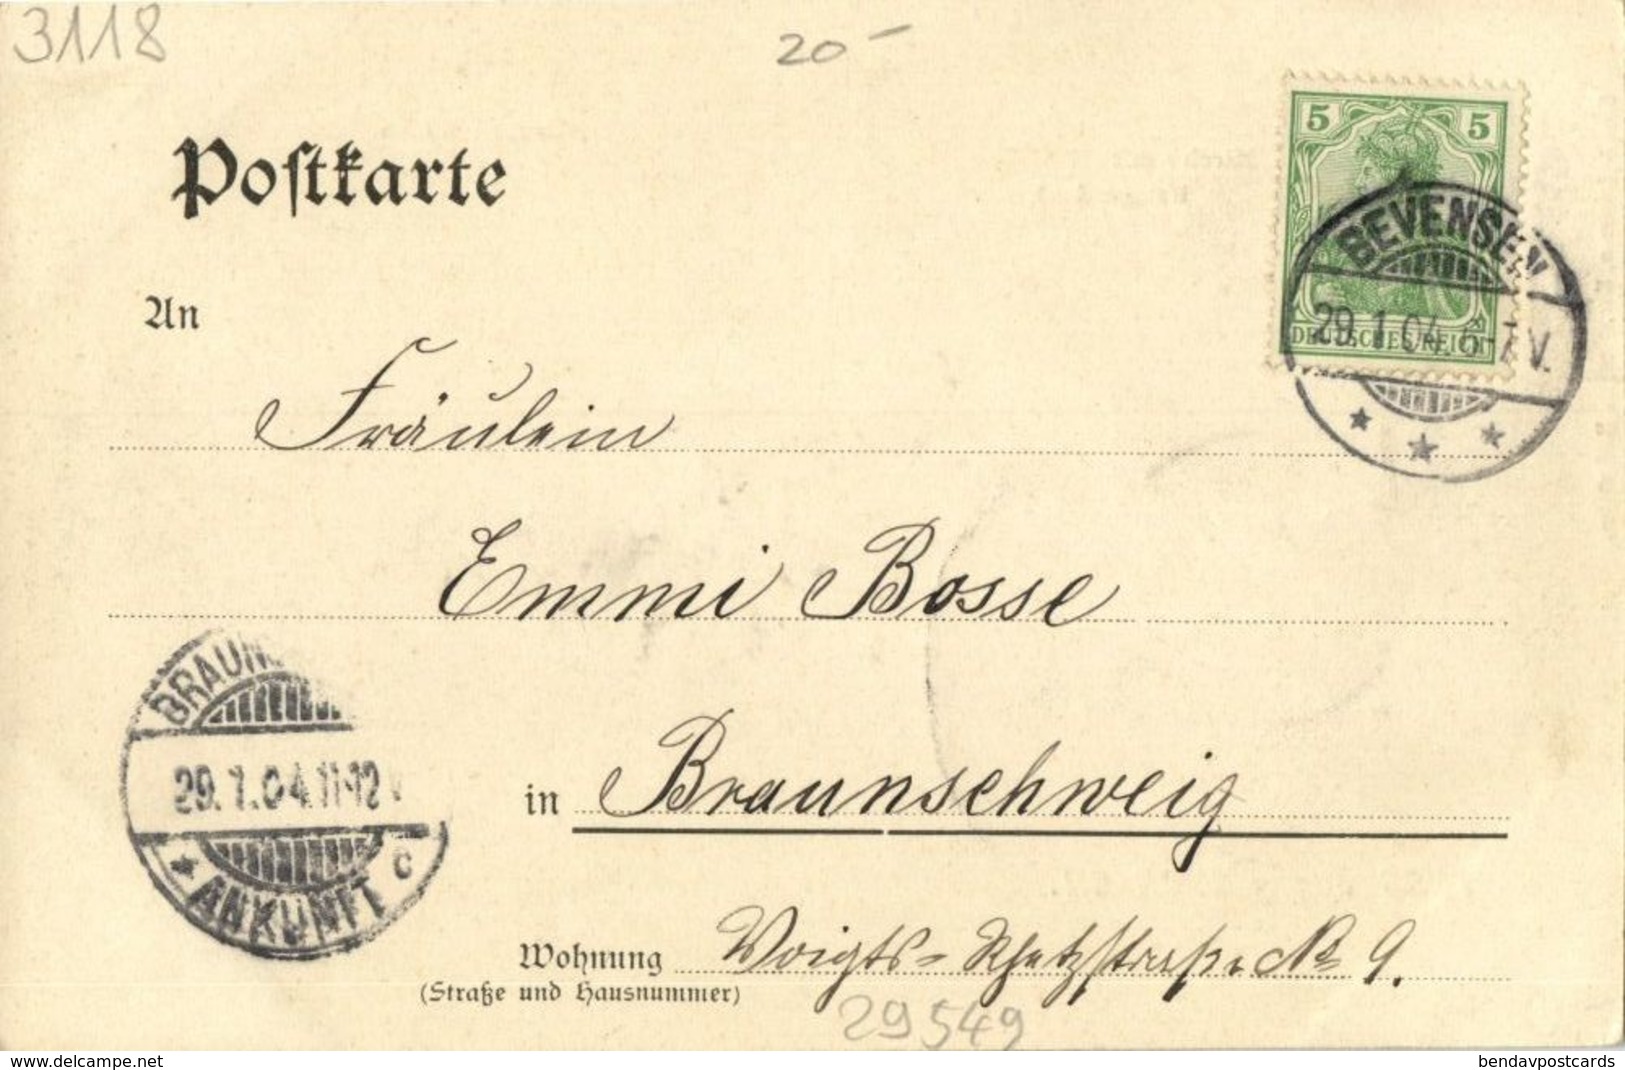 3118
20-
5 5
DEUTSCHES REICH
BEVENSEN
29.1.04. 6-7 V.
Postkarte
An
Fräulein
Emmi Bosse
in Braunschweig
BRAUN
29.1.04.11-12 V
ANKUNFT
c
Wohnung
(Straße und Hausnummer)
Voigts-Rhetzstraße No 9.
29549
www.delcampe.net
bendavpostcards